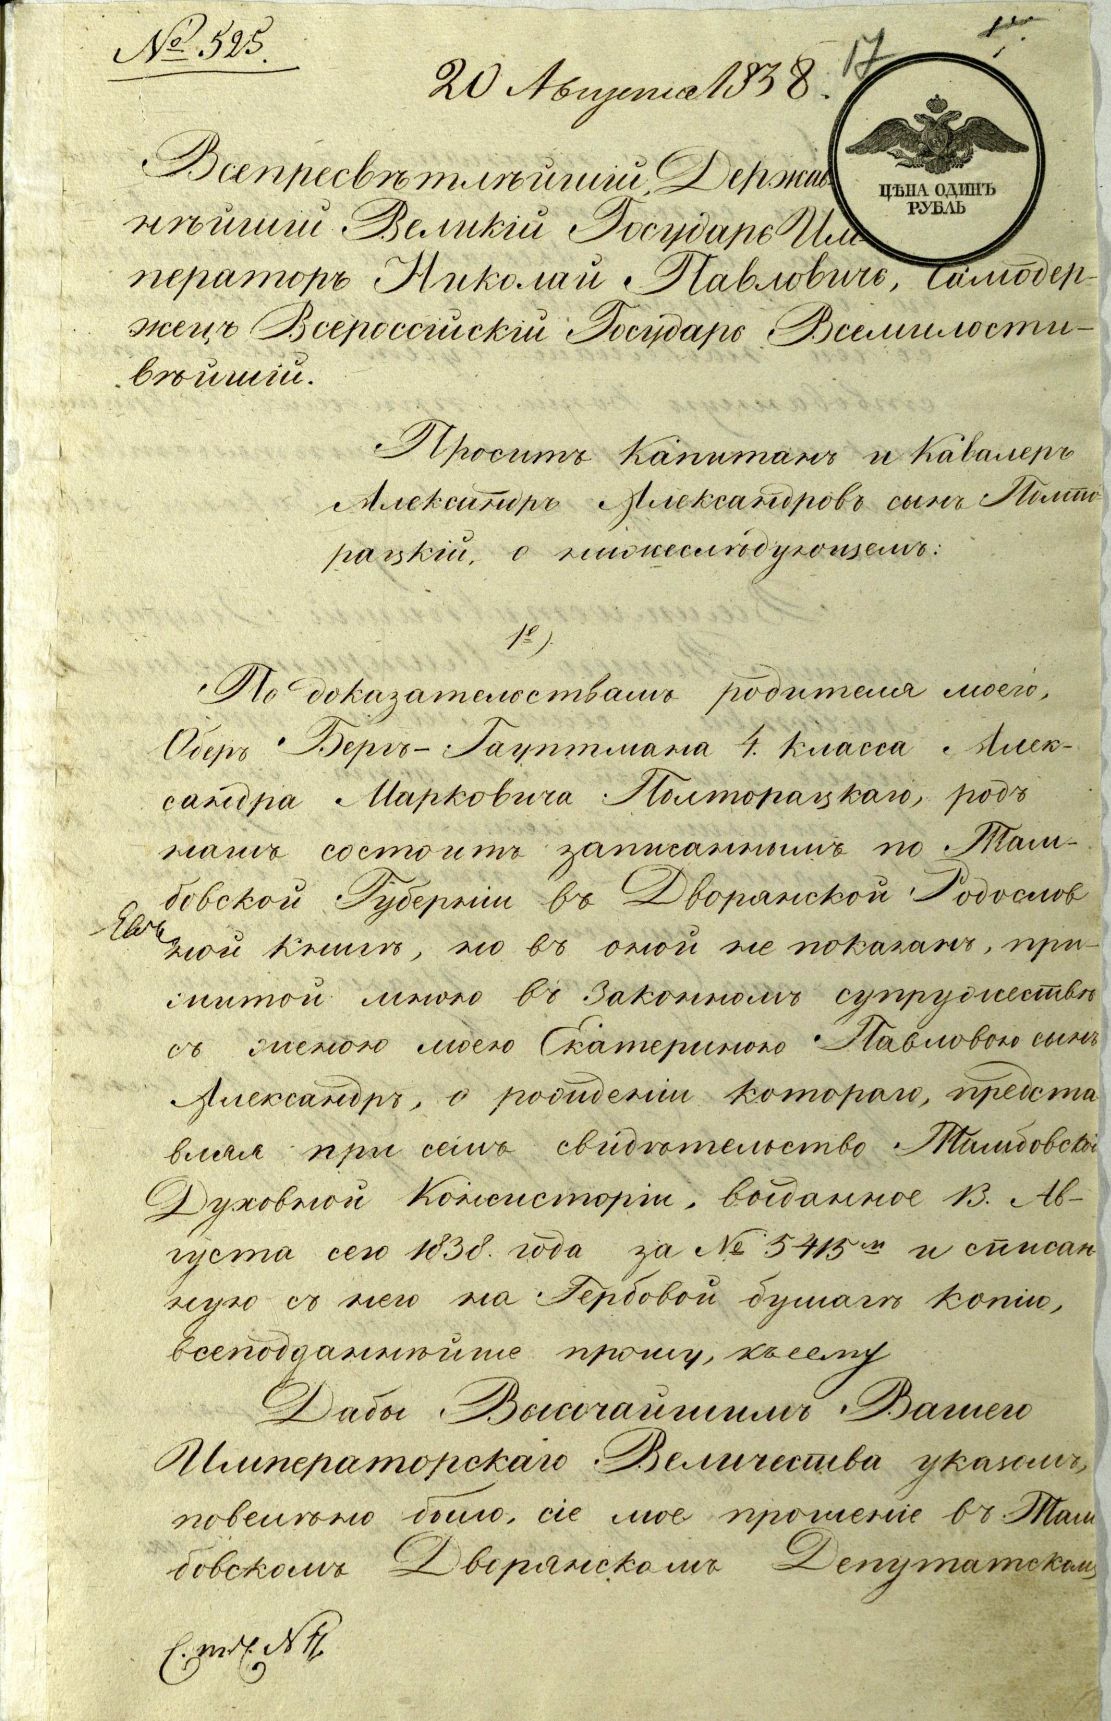 № 525.
17
20 Августа 1838.
ЦѢНА ОДИНЪ
РУБЛЬ
Всепресвѣтлѣйшій, Держав
нѣйшій Великій Государь Им
ператоръ Николай Павловичь, Самодер-
жецъ Всероссійскій Государь Всемилости-
вѣйшій.
Проситъ Капитанъ и Кавалеръ
Александръ Александровъ сынъ Полто-
рацкій, о нижеслѣдующемъ:
1е).
По доказательствамъ родителя моего,
Оберъ Бергъ-Гауптмана 4. класса Алек-
сандра Марковича Полторацкаго, родъ
нашъ состоитъ записаннымъ по Там-
бовской Губерніи въ Дворянской Родослов
ной книгѣ, но въ оной не показанъ, при-
житой мною въ законномъ супружествѣ
съ женою моею Екатериною Павловою сынъ
Александръ, о рожденіи котораго, предста
вляя при семъ свидѣтельство Тамбовской
Духовной Консисторіи, выданное 13. Ав-
густа сего 1838. года за № 5415м и списан
ную съ него на Гербовой бумагѣ копію,
всеподданнѣйше прошу, къ сему
Дабы Высочайшимъ Вашего
Императорскаго Величества указомъ,
повелѣно было, сіе мое прошеніе въ Там
бовскомъ Дворянскомъ Депутатскомъ